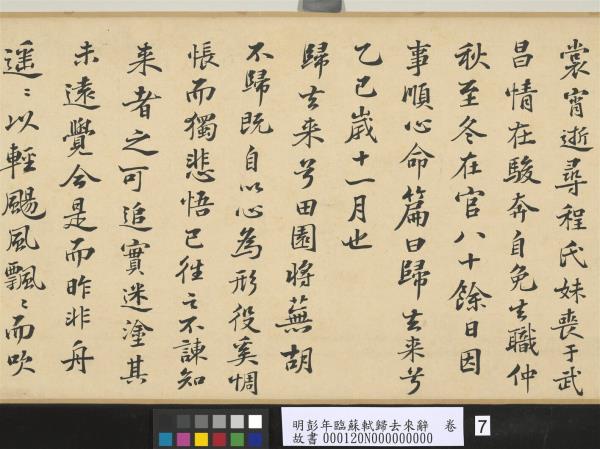 裳宵逝尋程氏妹喪于武
昌情在駿奔自免去職仲
秋至冬在官八十餘日因
事順心命篇曰歸去来兮
乙巳嵗十一月也
歸去来兮田園將蕪胡
不歸既自以心為形役奚惆
悵而獨悲悟已往之不諫知
来者之可追實迷塗其
未遠覺今是而昨非舟
遥〻以輕颺風飄〻而吹
明彭年臨蘇軾歸去來辭 卷
故書 000120N000000000
7